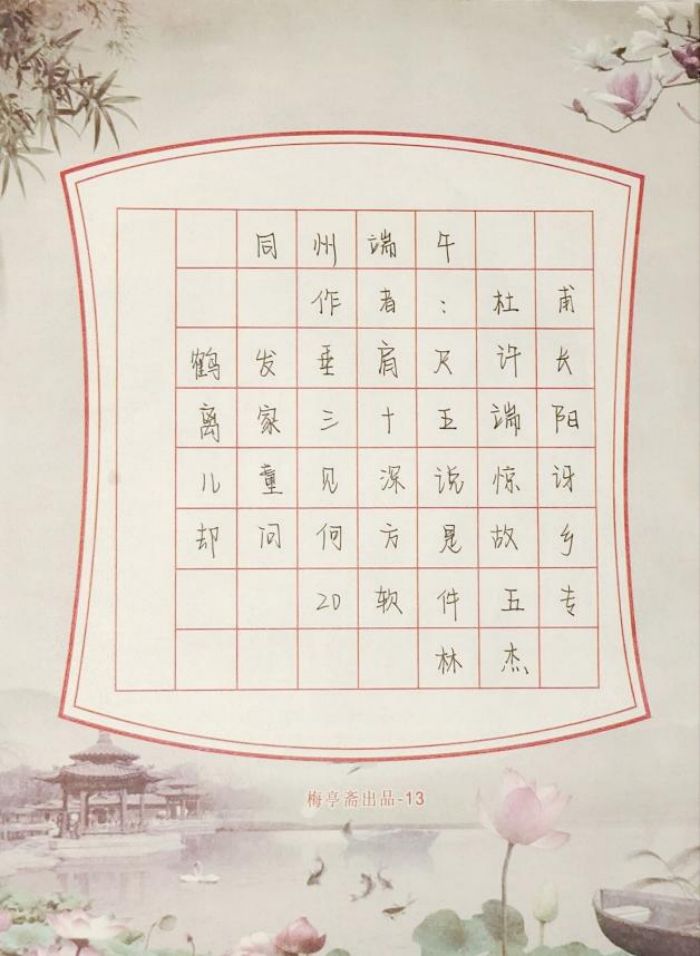 同州端午
作者：杜甫
鹤发垂肩尺许长
离家三十五端阳
儿童见深说惊讶
却问何方是故乡
20软件五专
林杰
梅亭斋出品-13